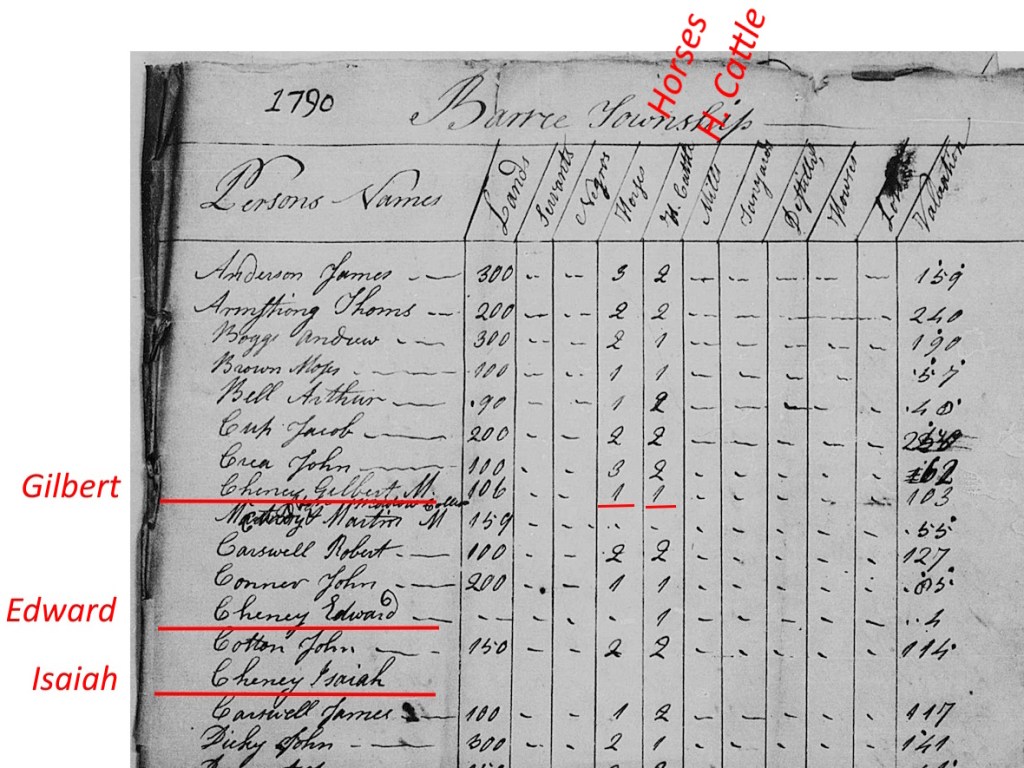 Horses
H. Cattle
1790 Barree Township
Persons Names Lands Servants Negros Horses H Cattle Mills Tanyards Distilles Valuation
Anderson James 300 - - 3 2 - - - - - 159
Armstrong Thoms 200 - - 2 2 - - 240
Boggs Andrew 300 - - 2 1 - - - - - 190
Brown Moses 100 - - 1 1 - - - - - 57
Bell Arthur 90 - - 1 2 - - - - - 48
Cup Jacob 200 - - 2 2 - - - - -
Crea John 100 - - 3 2 - - - - - 162
Gilbert Cheney Gilbert M 106 - - 1 1 - - - - - 103
Martin M 159 - - - - - - - - - 55
Carswell Robert 100 - - 2 2 - - - - - 127
Conner John 200 - - 1 1 - - - - - 85
Edward Cheney Edward - - - - 1 - - - - - 4
Cotton John 150 - - 2 2 - - - - - 114
Isaiah Cheney Isaiah
Carswell James 100 - - 1 2 - - - - - 117
Dicky John 300 - - 2 1 - - - - - 141